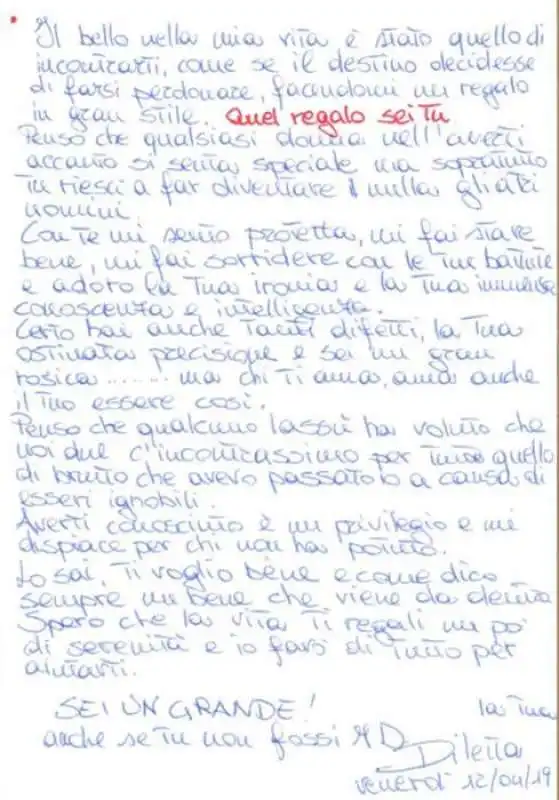 Il bello nella mia vita è stato quello di
incontrarti, come se il destino decidesse
di farsi perdonare, facendomi un regalo
in gran stile. Quel regalo sei Tu
Penso che qualsiasi donna nell'averti
accanto si senta speciale ma soprattutto
Tu riesci a far diventare nulla gli altri
uomini.
Con Te mi sento protetta, mi fai stare
bene, mi fai sorridere con le Tue battute
e adoro la Tua ironia e la Tua immensa
conoscenza e intelligenza.
Certo hai anche Tanti difetti, la Tua
ostinata precisione e sei un gran
rosica ........ ma chi Ti ama, ama anche
il Tuo essere così.
Penso che qualcuno lassù ha voluto che
noi due c'incontrassimo per Tutto quello
di brutto che avevo passato a causa di
esseri ignobili.
Averti conosciuto è un privilegio e mi
dispiace per chi non ha potuto.
Lo sai, Ti voglio bene e come dico
sempre un bene che viene da dentro
Spero che la vita Ti regali un po'
di serenità e io farò di Tutto per
aiutarti.
SEI UN GRANDE! la Tua
anche se Tu non fossi MD Diletta
venerdì 12/04/19